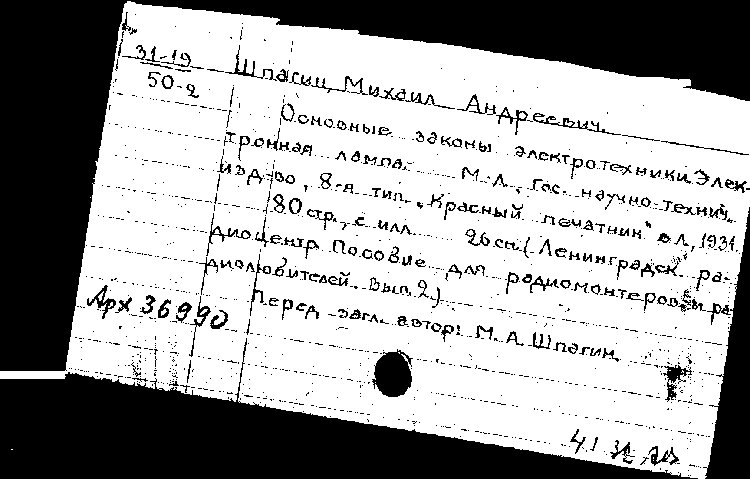 31-19
50-2
Шпагин, Михаил Андреевич.
Основные законы электротехники. Элек-
тронная лампа. М.-Л., Гос. научно-технич.
изд-во, 8-я тип. "Красный печатник" в Л., 1931.
80 стр., с илл. 26 см. (Ленинградск. ра-
диоцентр. Пособие для радиомонтеров и ра-
диолюбителей. Вып. 2.)
Перед загл. автор: М. А. Шпагин.
Арх 36990
41